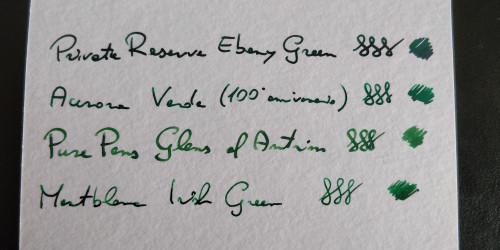 Private Reserve Ebony Green
Aurora Verde (100° aniversario)
Pure Pens Glens of Antrim
Montblanc Irish Green